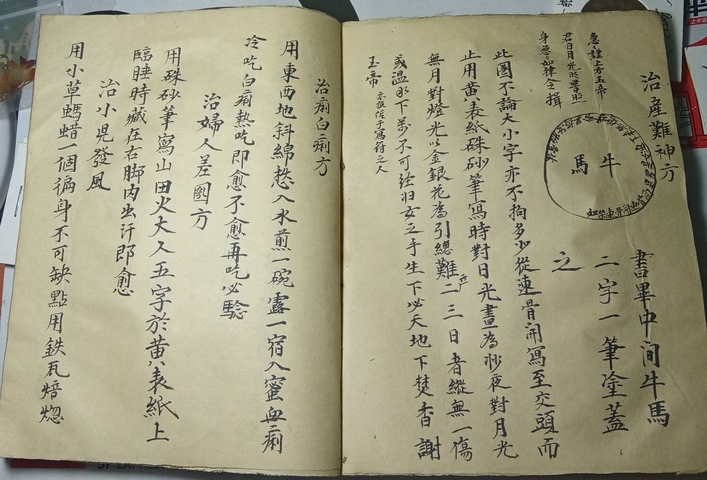 治產難神方
牛
馬
書畢中间牛馬
二字一筆塗蓋
之
君日月光明普照
身急如律令
此圈不論大小字亦不拘多少從連骨開寫至交頭而
止用黄表紙硃砂筆寫時對日光晝為妙夜對月光
無月對燈光以金銀花為引總難產二三日者縱無一傷
或温水下萬不可经归女之手生下必天地下焚香謝
玉帝
寫符之人
治痢白痢方
用東西地斜綿愁入水煎一碗露一宿入蜜血痢
冷吃白痢熱吃即愈不愈再吃必驗
治婦人差國方
用硃砂筆寫山田火大人五字於黄表紙上
臨睡時藏在右脚内出汗即愈
治小児發風
用小草螞蜡一個徧身不可缺點用鉄瓦焙